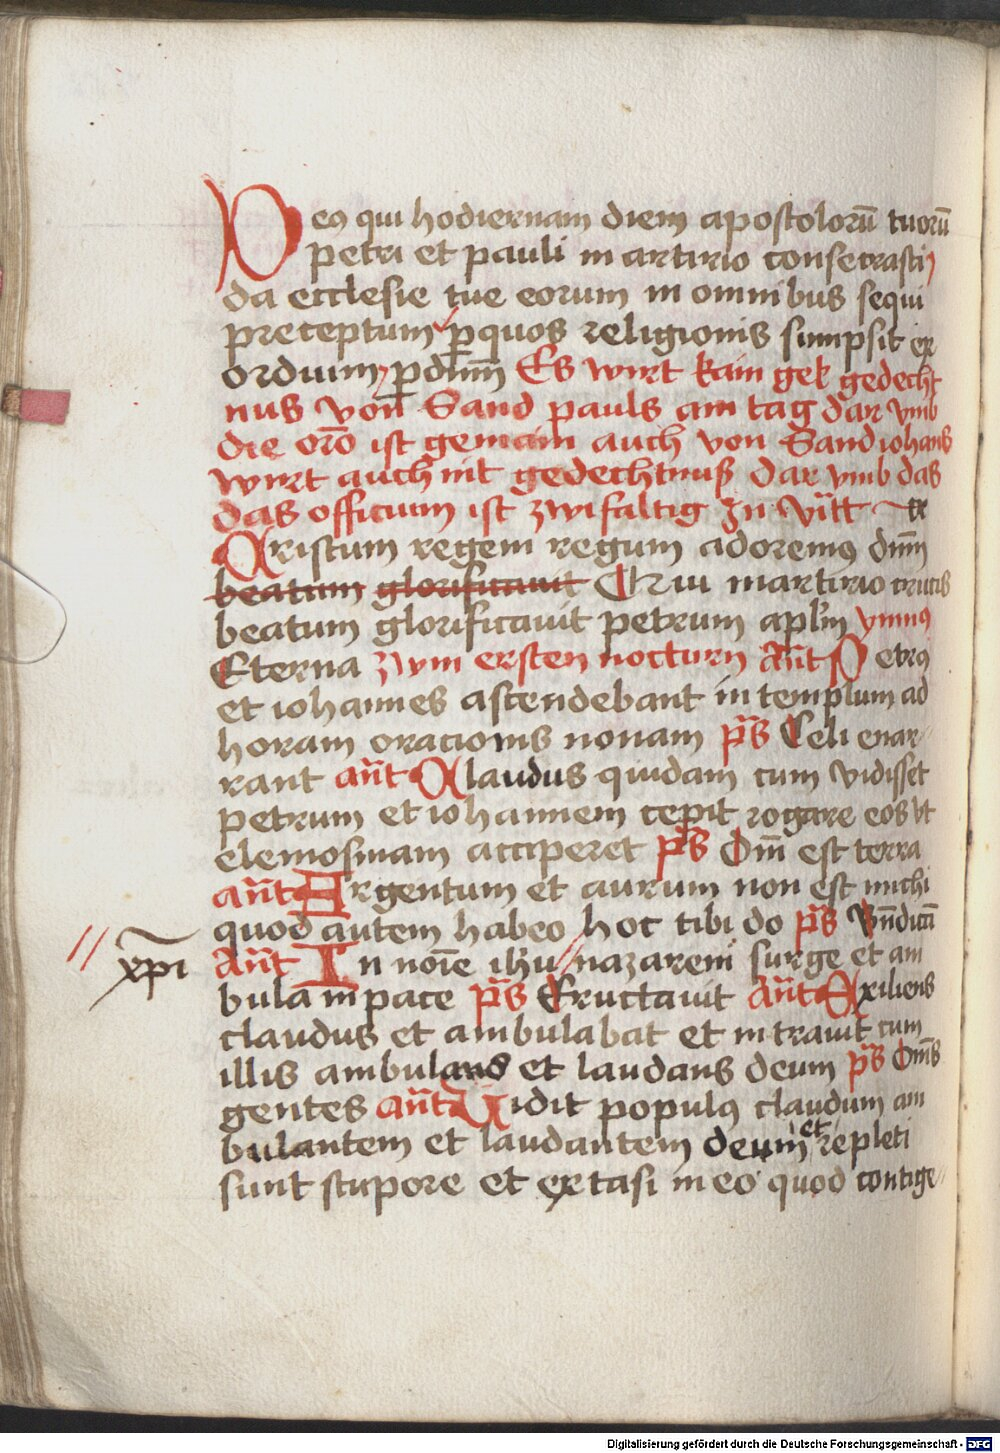 Deus qui hodiernam diem apostolorū tuorū
petri et pauli martirio consecrasti
da ecclesie tue eorum in omnibus sequi
preceptum per quos religionis sumpsit ex
ordium, p dnm̄ Es wirt kain gek gedecht
nus von Sand pauls am tag dar vmb
die orō ist gemain auch von Sand iohans
wirt auch nit gedechtnuß dar vmb das
das officium ist zwifaltig Zu vitt
Xristum regem regum adoremus dnm̄
beatum glorificauit Qui martirio crucis
beatum glorificauit petrum aplm̄ ymnus
Eterna zum ersten nocturn Ant Petrus
et iohannes ascendebant in templum ad
horam oracionis nonam ps Celi enar
rant ant Claudus quidam cum vidisset
petrum et iohannem cepit rogare eos vt
elemosinam acciperet ps Dm̄ est terra
ant Argentum et aurum non est michi
quod autem habeo hoc tibi do ps Bn̄dicā
xp̄i Ant In noīe ihu // nazareni surge et am
bula in pace ps Eructauit Ant Exiliens
claudus et ambulabat et intrauit cum
illis ambulans et laudans deum ps Om̄s
gentes ant Vidit populus claudum am
bulantem et laudantem deum et repleti
sunt stupore et extasi in eo quod contige
Digitalisierung gefördert durch die Deutsche Forschungsgemeinschaft - DFG